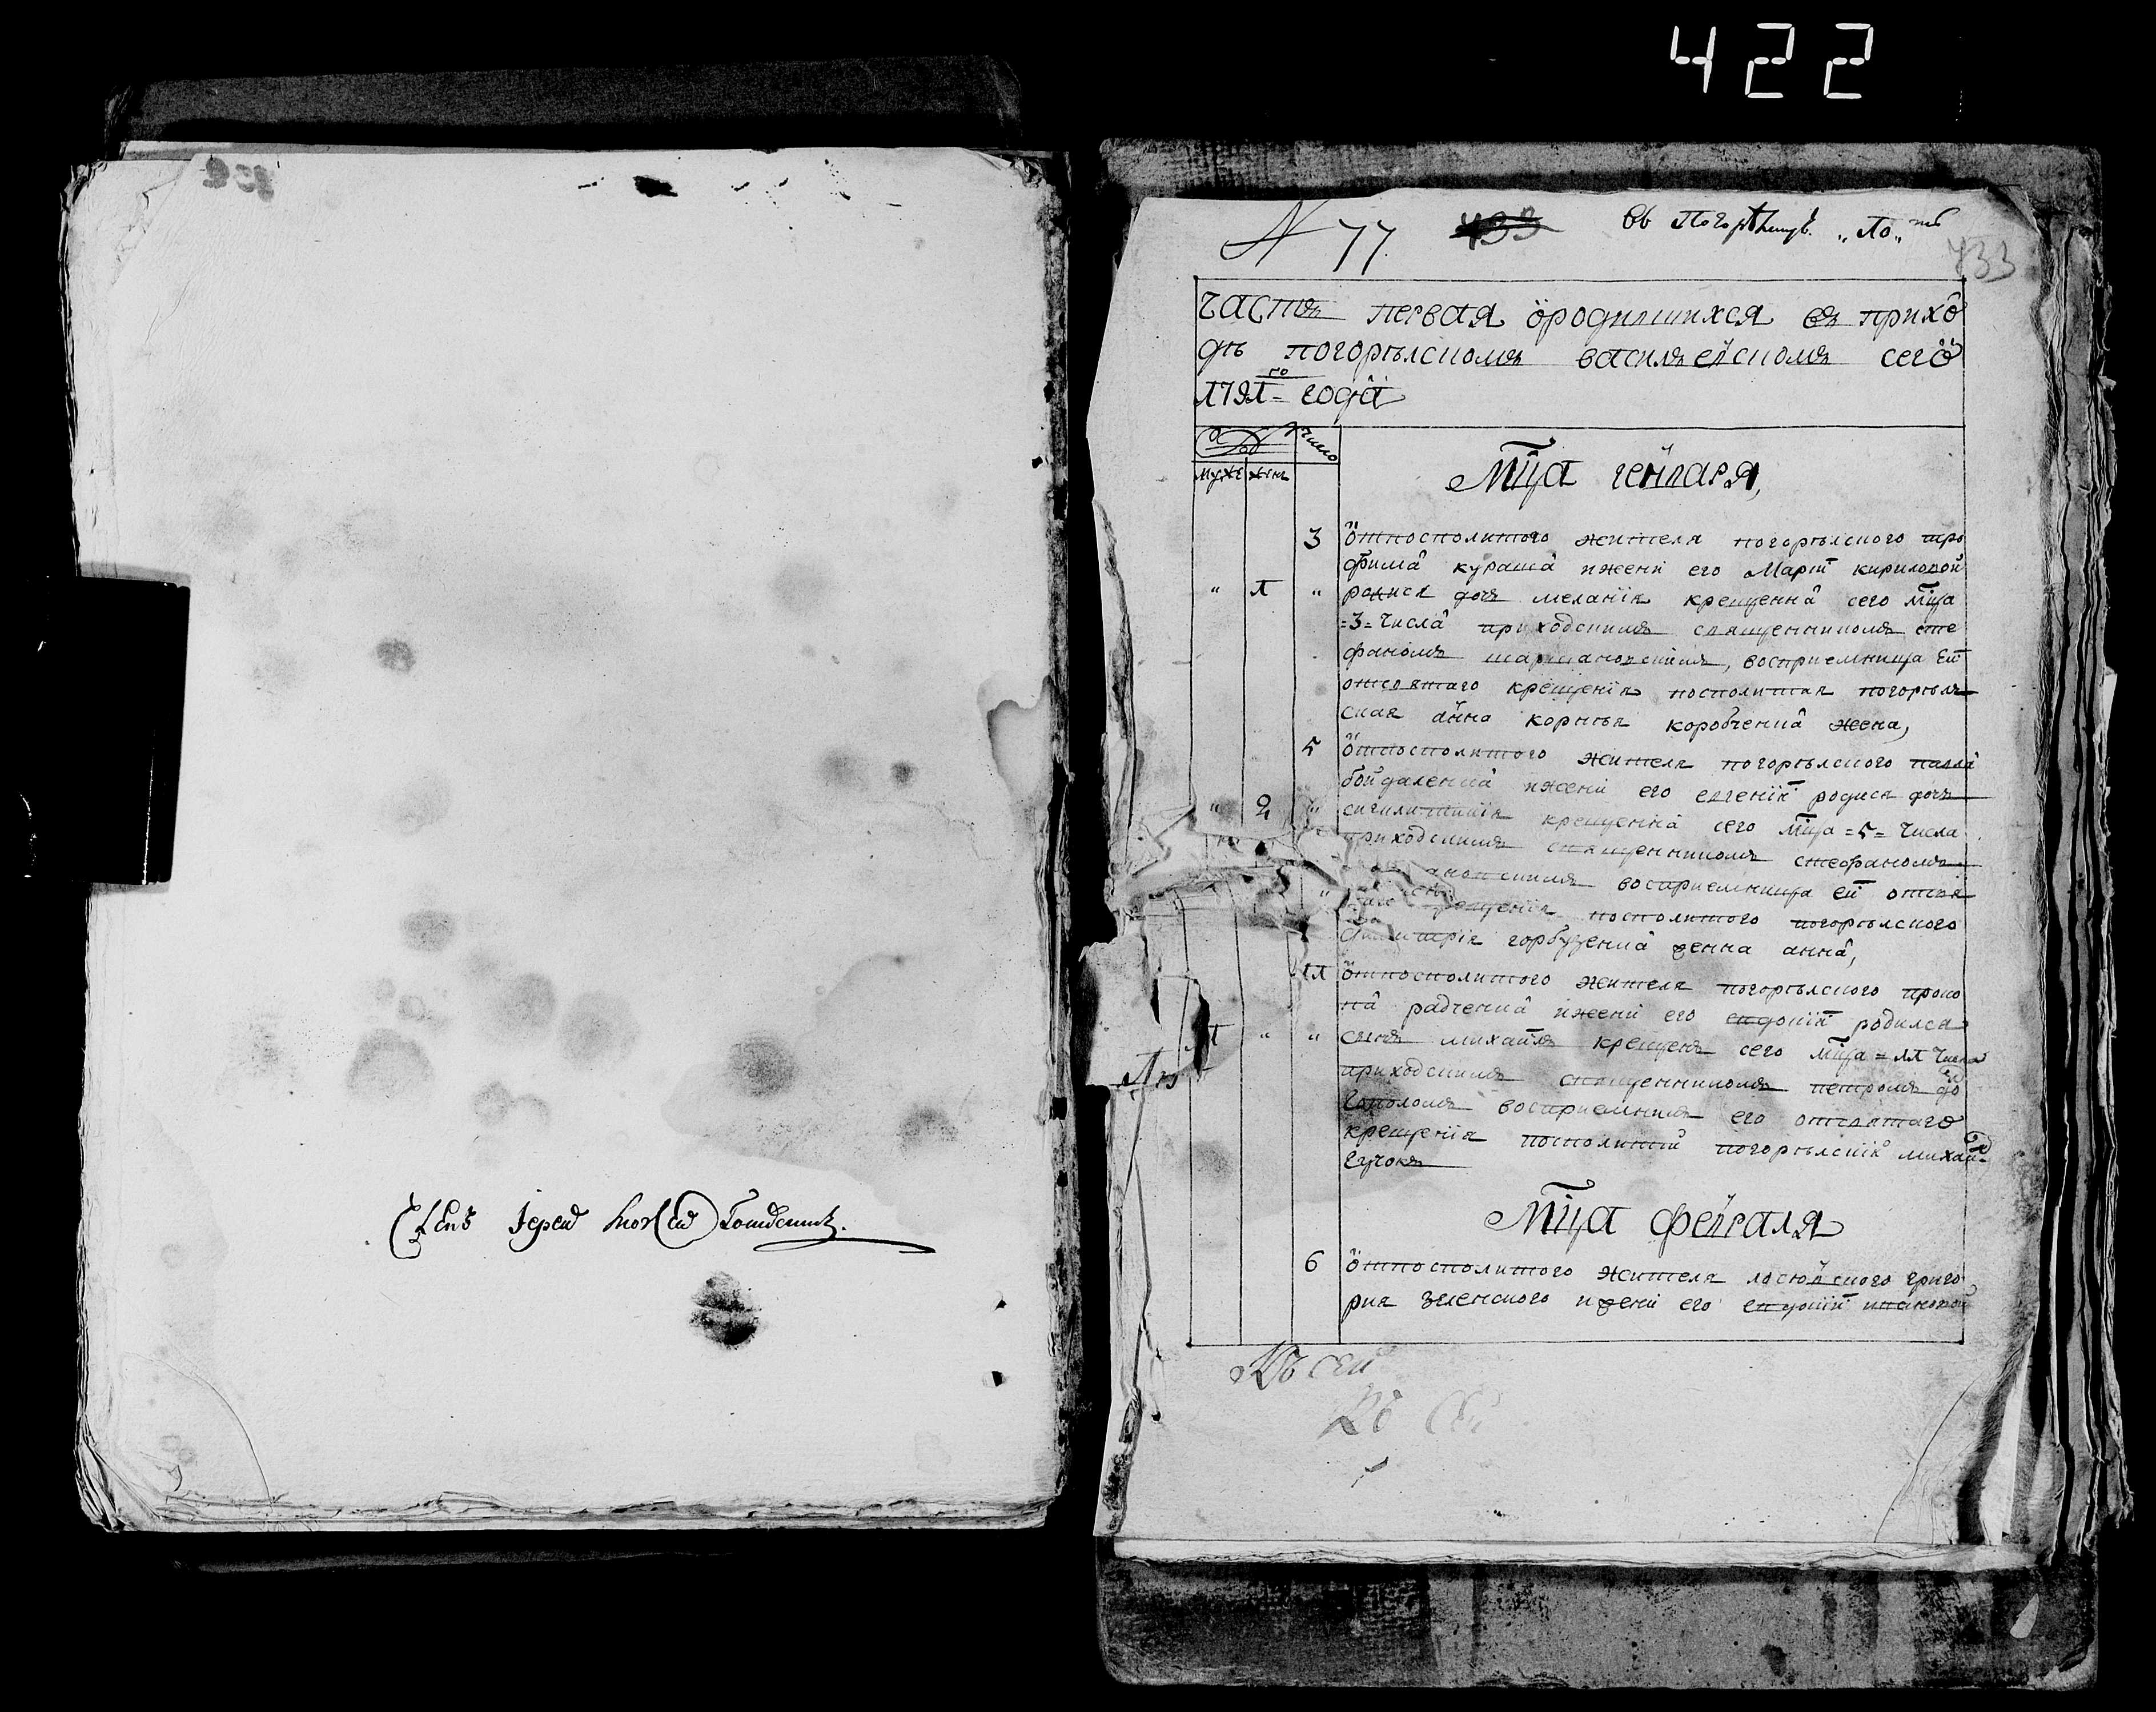 422
Іерей
N 77. 433 въ
433
часть первая ѡродившихся въ прихо
дѣ погорѣлскомъ василъевскомъ сего
1791го года
число
муже женс
Мц҃а генваря,
3 ѿпосполитого жителя погорѣлского тро
фима кураша ижени его Маріи кириловой
" 1 " родися дочь меланія крещенна сего мц҃а
=3= числа приходскимъ священникомъ сте
фаномъ восприемница еи
отсвятаго крещенія посполитая погорѣл
ская анна корнѣя коробченка жена,
5 ѿпосполитого жителя погорѣлского павла
бойдаленка ижени его евгеніи родися дочь
" 2 " крещенна сего мц҃а =5= числа
приходскимъ священникомъ стефаномъ
восприемница еи отсвя
крещенія посполитого погорѣлского
димитрія горбузенка женна анна,
11 ѿпосполитого жителя погорѣлского проко
па радченка ижени его евдокіи родился
1 " " сынъ михаилъ крещенъ сего мц҃а =11 числа
приходскимъ священникомъ петромъ
восприемникъ его отсвятаго
крещенія посполитий погорѣлскій михаи
Мц҃а февраля
6 ѿпосполитого жителя григо
рия зеленского ижени его евдокіи ивановой
Къ сей